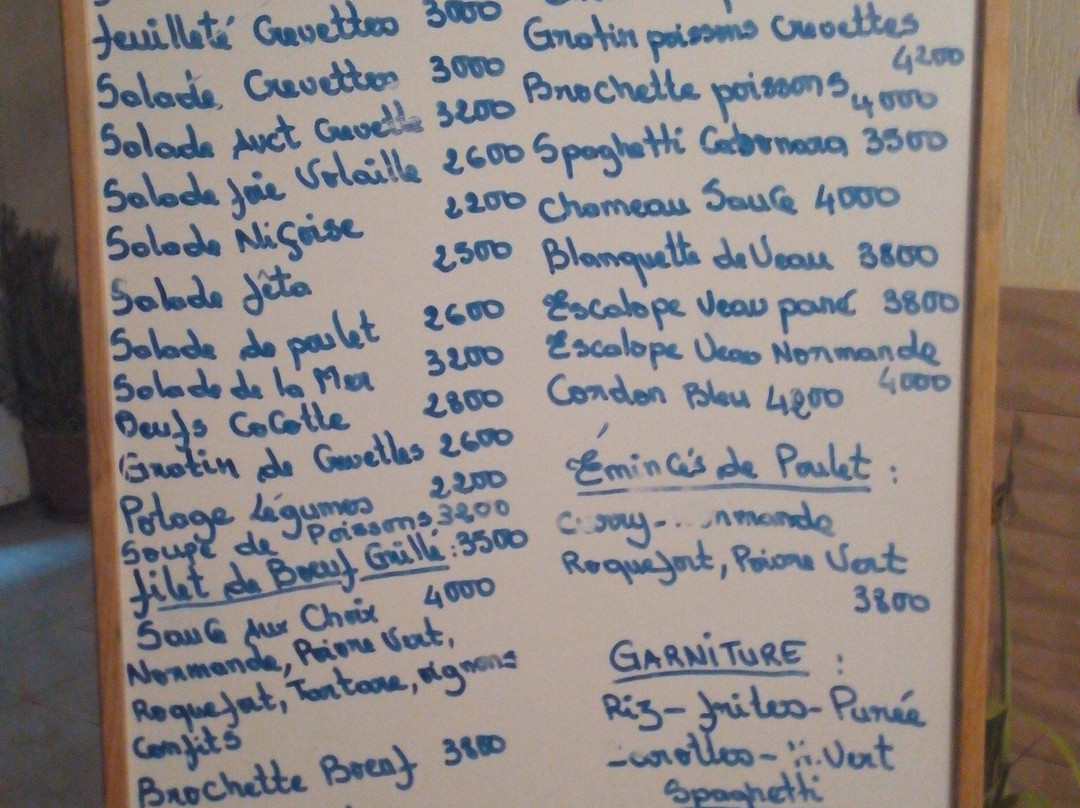 feuilleté Crevettes 3000
Salade Crevettes 3000
Salade Avct Crevette 3200
Salade foie Volaille 2600
Salade Niçoise 2200
Salade fêta 2500
Salade de poulet 2600
Salade de la Mer 3200
Oeufs Cocotte 2800
Gratin de Crevettes 2600
Potage Légumes 2200
Soupe de Poissons 3200
filet de Boeuf Grillé : 3500
Sauce Aux Choix 4000
Normande, Poivre Vert,
Roquefort, Tartare, oignons
Confits
Brochette Boeuf 3800
Gratin poissons Crevettes
4200
Brochette poissons 4000
Spaghetti Cabonara 3500
Chameau Sauce 4000
Blanquette de Veau 3800
Escalope Veau pané 3800
Escalope Veau Normande
4000
Cordon Bleu 4200
Émincés de Poulet :
Roquefort, Poivre Vert
3800
GARNITURE :
Riz - frites - Purée
- carottes - H. Vert
Spaghetti